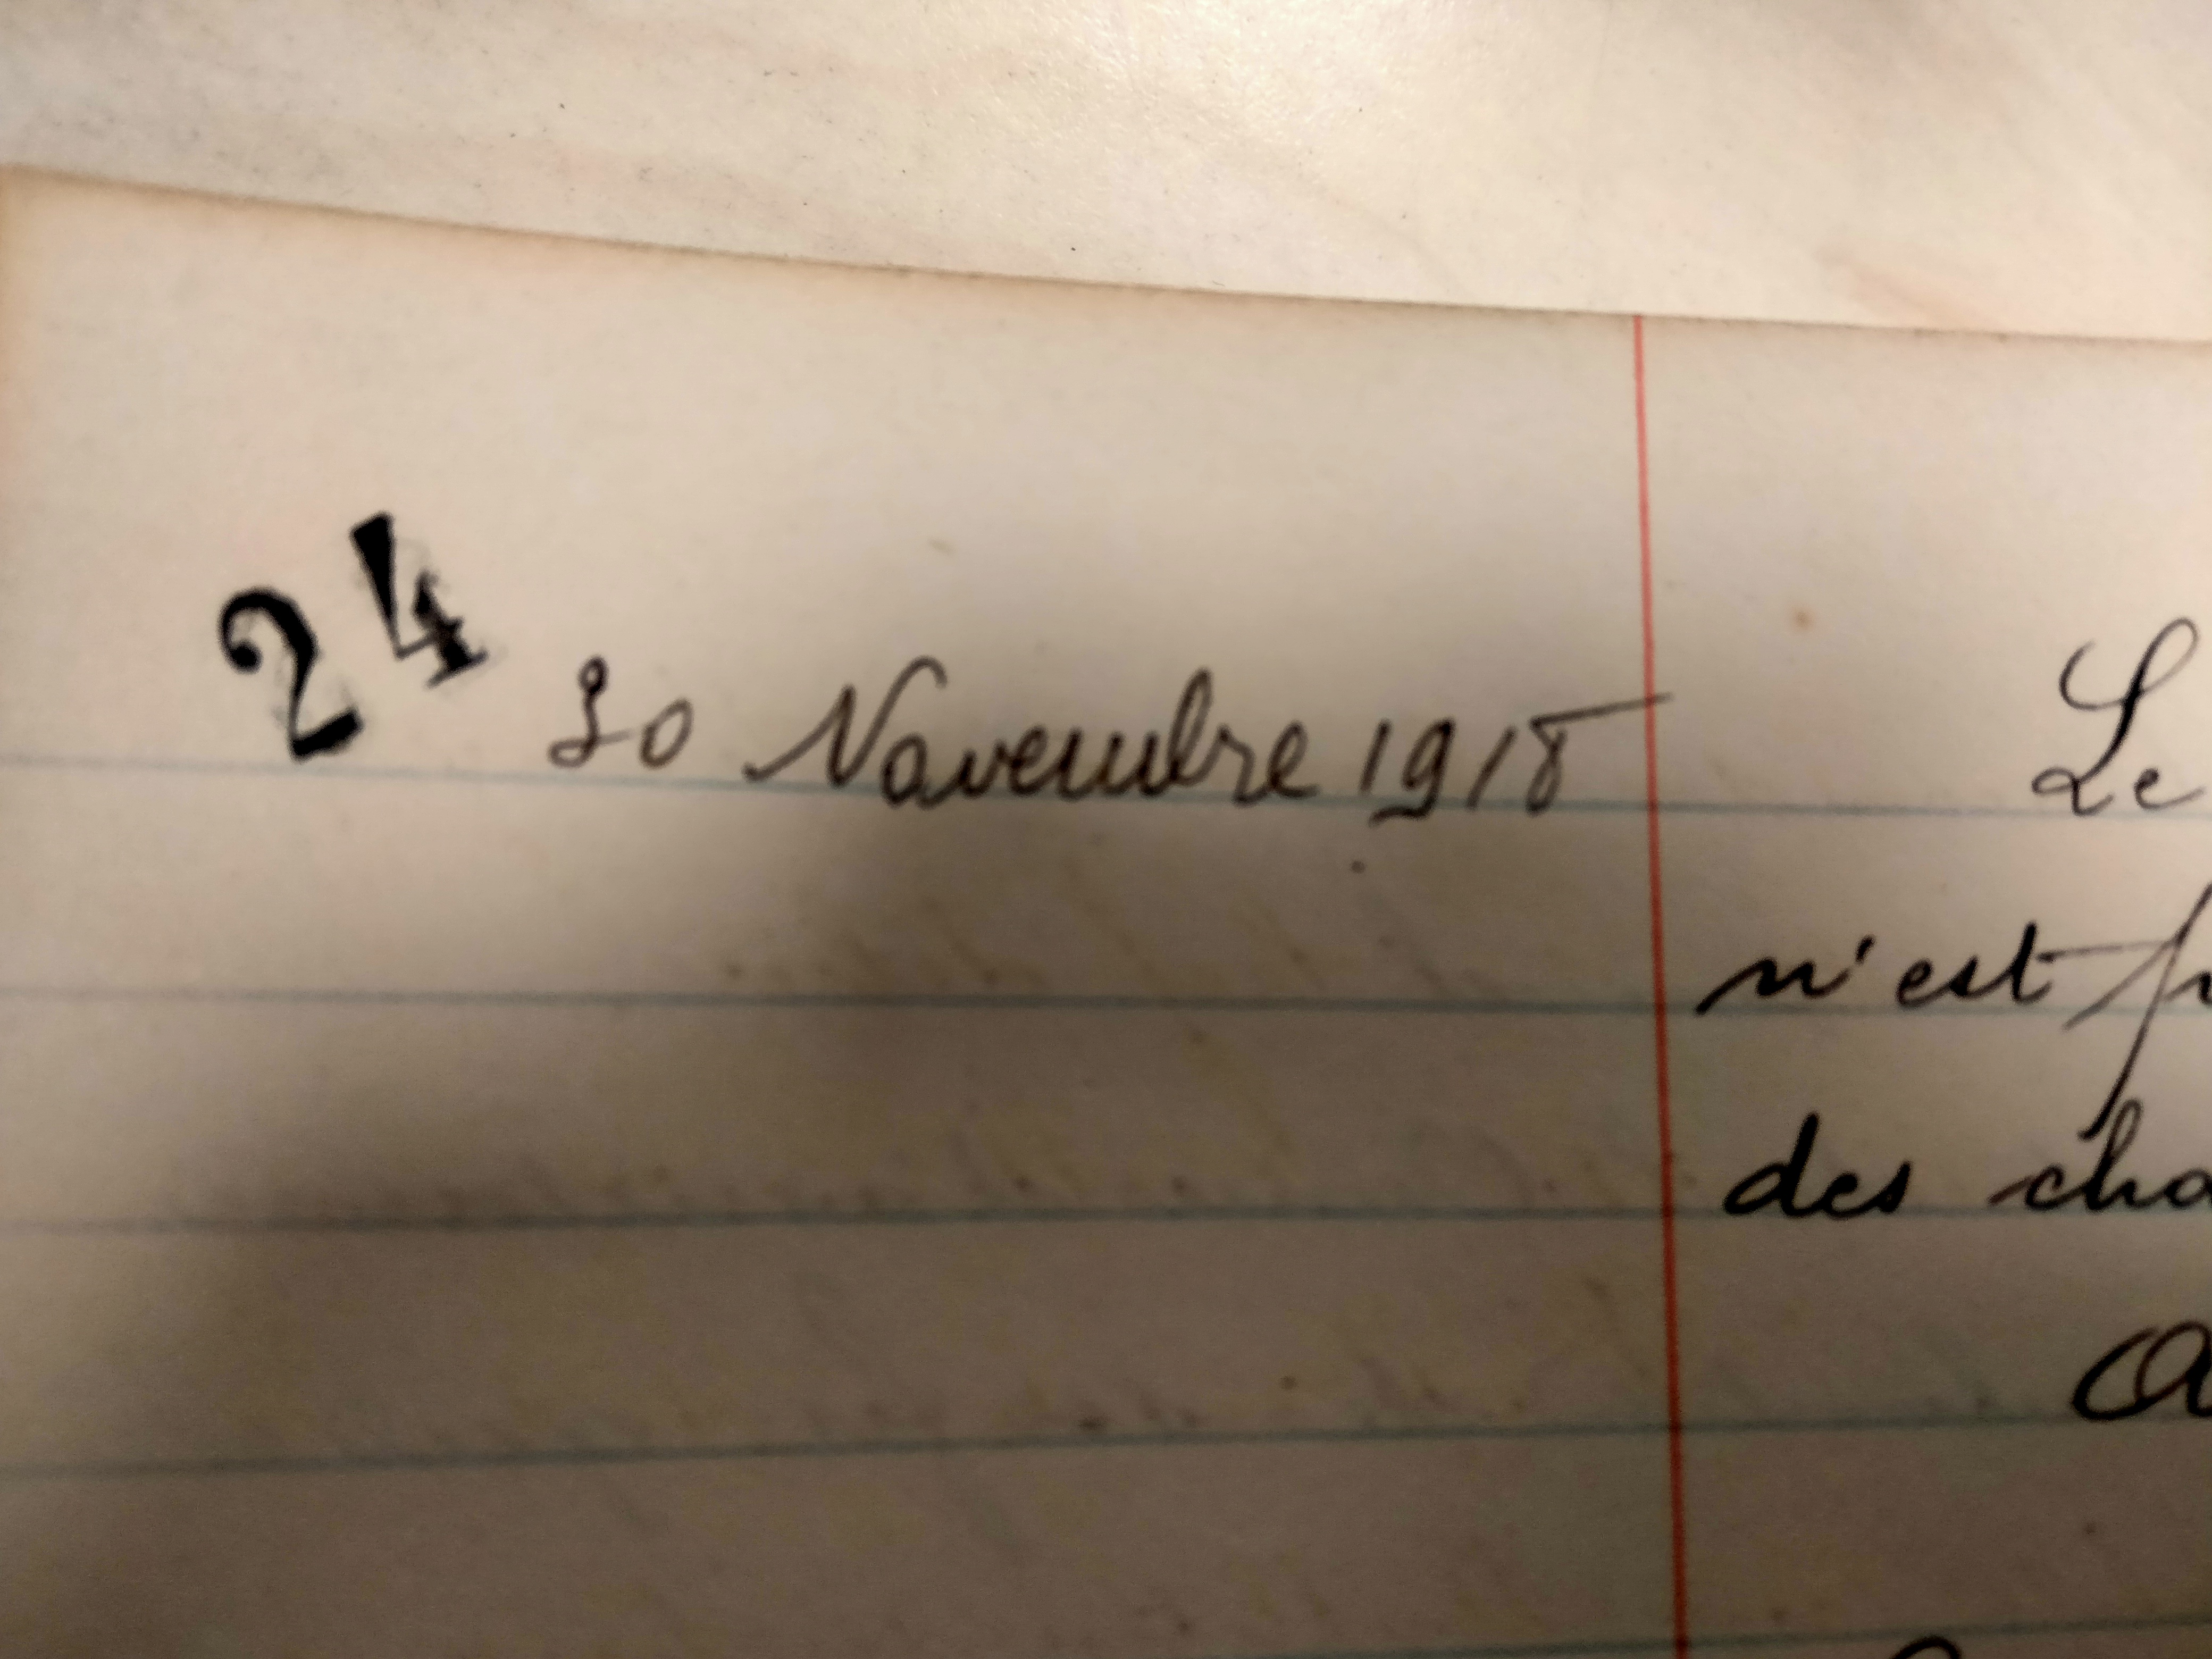 24
30 Novembre 1918
Le
n'est
des cha